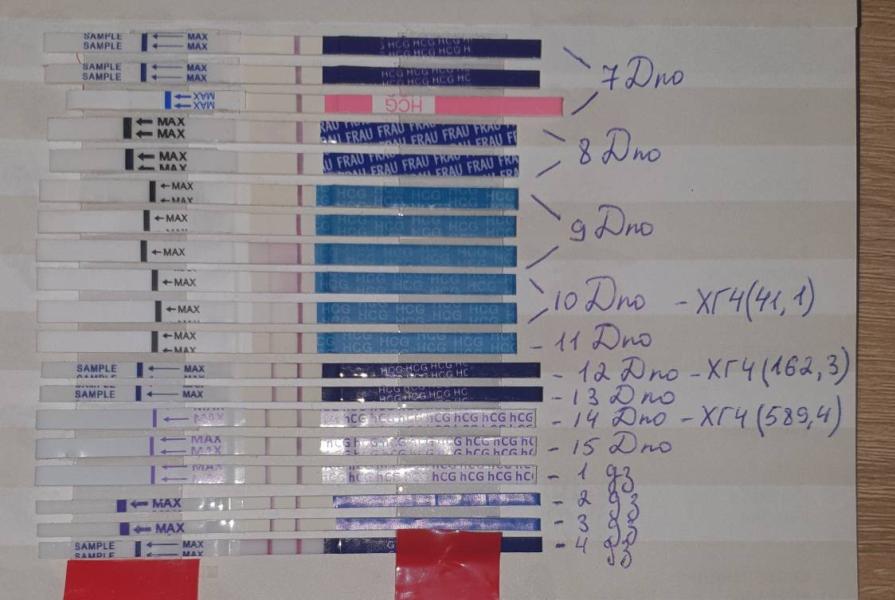 SAMPLE MAX
SAMPLE MAX HCG HCG HCG H
SAMPLE MAX HCG HCG HCG HC
SAMPLE MAX
MAX HCG
7 Дпо
MAX FRAU FRAU FRAU FRAU
MAX FRAU FRAU FRAU FRAU
8 Дпо
MAX FRAU FRAU FRAU FRAU
MAX
MAX HCG HCG HCG HCG
MAX
MAX HCG HCG HCG
9 Дпо
MAX HCG HCG HCG
MAX HCG HCG HCG
MAX HCG HCG HCG HCG
10 Дпо - ХГЧ(41,1)
MAX HCG HCG HCG
MAX
- 11 Дпо
SAMPLE MAX HCG HCG HCG HC
- 12 Дпо - ХГЧ(162,3)
SAMPLE MAX HCG HCG HCG HC
- 13 Дпо
MAX hCG hCG hCG hCG hCG hCG hCG
- 14 Дпо - ХГЧ(589,4)
MAX hCG hCG hCG hCG hCG hCG
MAX
- 15 Дпо
MAX hCG hCG hCG hCG
MAX
- 1 дз
MAX
- 2 дз
MAX
- 3 дз
SAMPLE MAX
SAMPLE MAX
- 4 дз